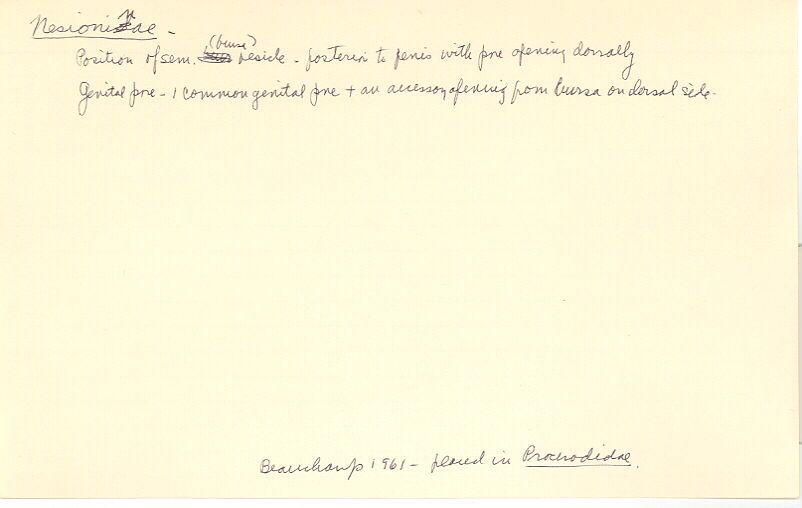 Nesioninae -
(bursa)
Position of sem. vesicle - posterior to penis with pore opening dorsally
Genital pore - 1 common genital pore + an accessory opening from bursa on dorsal side.
Beauchamp 1961 - placed in Procerodidae.